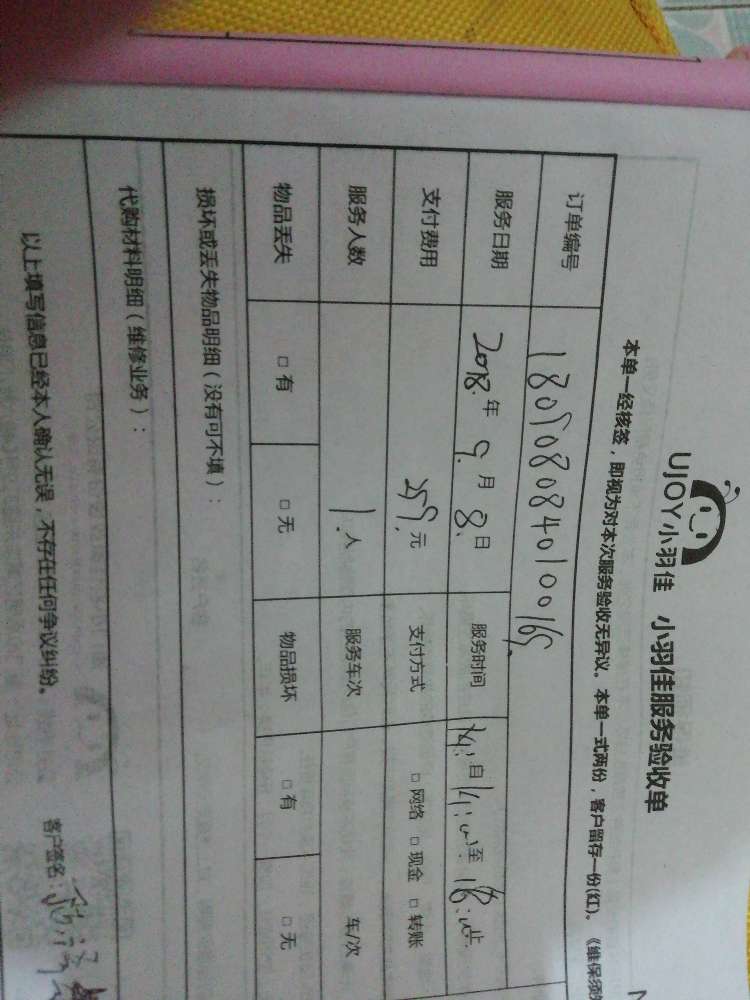 UJOY小羽佳 小羽佳服务验收单
本单一经核签，即视为对本次服务验收无异议。本单一式两份，客户留存一份(红)。《维保须
订单编号
服务日期 2018年 9.月 8.日 服务时间
支付费用 元 支付方式 □ 网络 □ 现金 □ 转账
服务人数 1.人 服务车次 车/次
物品丢失 □ 有 □ 无 物品损坏 □ 有 □ 无
损坏或丢失物品明细（没有可不填）：
代购材料明细（维修业务）：
以上填写信息已经本人确认无误，不存在任何争议纠纷。 客户签名：